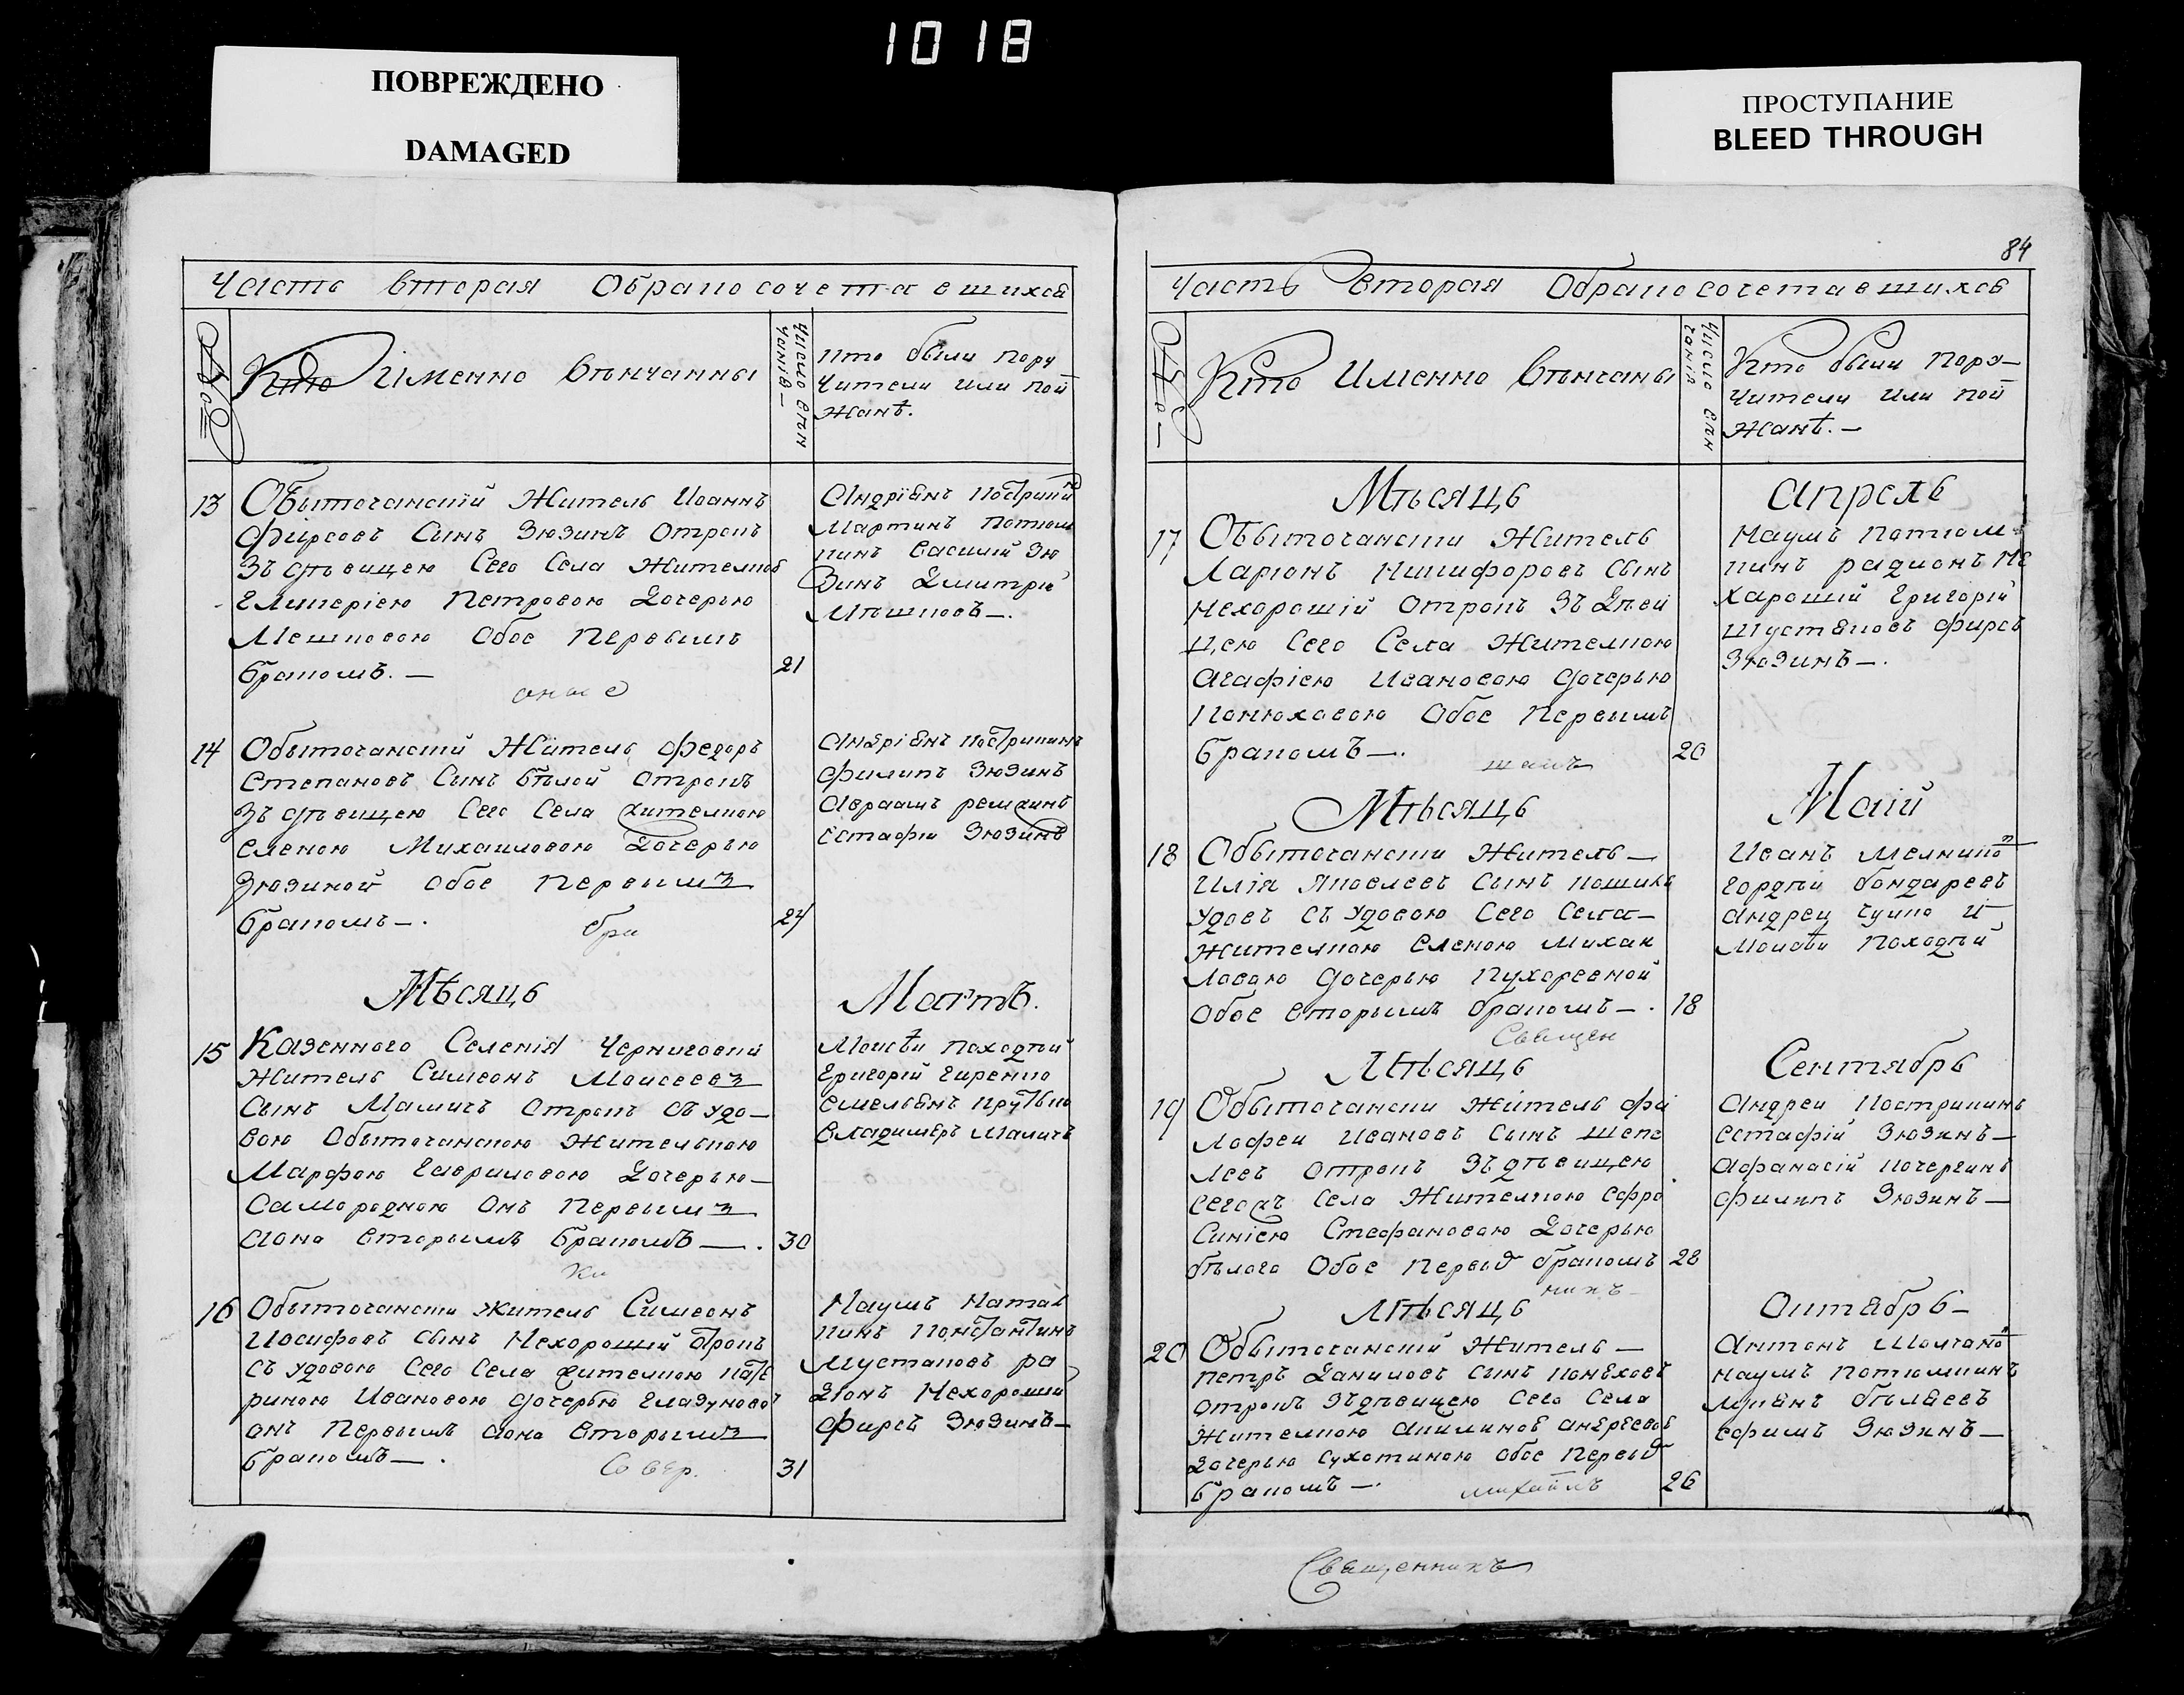 1018
ПОВРЕЖДЕНО
DAMAGED
ПРОСТУПАНИЕ
BLEED THROUGH
Часть вторая О бракосочетавшихся
Кто Іменно Вѣнчанны
Число вѣн
чанія —
Кто были пору
чители или пой
жанѣ.
13 Обыточанскій Житель Иоаннъ
Фирсовъ Сынъ Зюзинъ Отрокъ
Зъ дѣвицею Сего Села Жителкою
Гликеріею Петровою Дочерью
Мешковою Обое Первымъ
бракомъ. — 21
оные
Андріянъ Пострикин
Мартинъ Потюм
кинъ Василій Зю
Зинъ Дмитрій
Мѣшковъ —.
14 Обыточанскій Житель Федоръ
Степановъ Сынъ бѣлой Отрокъ
Зъ дѣвицею Сего Села жителкою
Еленою Михаиловою Дочерью
Зюзиной Обое Первымъ
бракомъ —. 24
бра
Андріянъ Пострикинъ
Филипъ Зюзинъ
Авраамъ
Естафій Зюзинъ
Мѣсяцъ Мартъ.
15 Казенного Селенія Черниговки
Житель Симеонъ Моисеевъ
Сынъ Маличъ Отрокъ съ удо—
вою Обыточанскою Жителькою
Марфою Гавриловою Дочерью—
Самородкою Онъ Первымъ
Аона вторымъ бракомъ —. 30
Моисѣй Походѣй
Григорій Гиренко
Емельянъ
Владимеръ Маличъ
16 Обыточански житель Симеонъ
Иосифовъ сынъ Нехороший отрокъ
съ удовою Сего Села жителкою Кате
риною Ивановою дочерью Глазуновой
онъ Первымъ аона Вторымъ
бракомъ —. 31
Совер.
Наумъ
кинъ Константинъ
Шустаковъ ра
дионъ Нехороший
Фирсъ Зюзинъ—
84
Часть вторая О бракосочетавшихся
Кто Именно Вѣнчаны
Число вѣн
чанія
Кто были пору—
чители или пой
жанѣ. —
Мѣсяцъ Апрель
17 Обыточански Житель
Ларіонъ Никифоровъ Сынъ
Нехорошій Отрокъ Зъ Дѣви
цею Сего Села Жителкою
Агафіею Ивановою дочерью
Конюховою Обое Первымъ
бракомъ —. 20
Наумъ Потюм
кинъ радионъ Не
Хароший Григорій
Шустаковъ фирсъ
Зюзинъ —.
Мѣсяцъ Маій
18 Обыточански Житель —
Илія Яковлевъ Сынъ
Удовъ съ удовою Сего Села—
Жителкою Еленою Михаи
ловою дочерью Пухоревной
Обое вторымъ бракомъ —. 18
Священ
Иванъ Мелнико
Гордѣй бондаревъ
Андреи Чуико и
Моисѣи Походѣй
Мѣсяцъ Сентябрь
19 Обыточански Житель Фи
лофеи Ивановъ Сынъ Щего
левъ Отрокъ Зъ дѣвицею
Сегожъ Села Жителкою Ефро
Синіею Стефановою Дочерью
бѣлого Обое Первы бракомъ 28
никъ
Андреи Пострикинъ
Естафій Зюзинъ—
Афанасій Кочергинъ
Филипъ Зюзинъ—
Мѣсяцъ Октябрь—
20 Обыточанскій Житель —
Петръ Даниловъ Сынъ Коняховъ
Отрокъ Зъ дѣвицею Сего Села
Жителкою Акилиною Андреевою
Дочерью Сухотиною обое Первы
бракомъ —. 26
михаилъ
Антонъ Молчано
Наумъ Потюмкинъ
Лукянъ бѣляевъ
Ефимъ Зюзинъ—
Священникъ